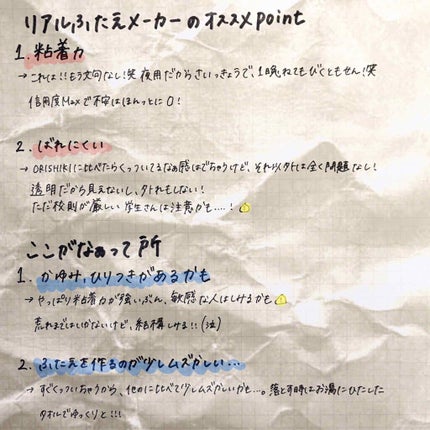 リアルふたえメーカーのオススメpoint
1. 粘着力
→ これは!!もう文句なし!笑 夜用だからさいきょうで、1晩ねてもびくともせん!笑
信用度Maxで不安はほんっとに0!
2. ばれにくい
→ ORISHIKIに比べたらくっついてるなぁ感はでちゃうけど、それ以外は全く問題なし!
透明だから見えないし、外れもしない!
ただ校則が厳しい学生さんは注意かも....!
ここがなぁって所
1. かゆみ、ひりつきがあるかも
→ やっぱり粘着力が強いぶん、敏感な人はしみるかも
荒れまではいかないけど、結構しみる!!(泣)
2. ふたえを作るのが少しムズかしい...
→ すぐくっついちゃうから、他のに比べて少しムズかしいかも...。落とす時はお湯にひたした
タオルでゆっくりと!!!